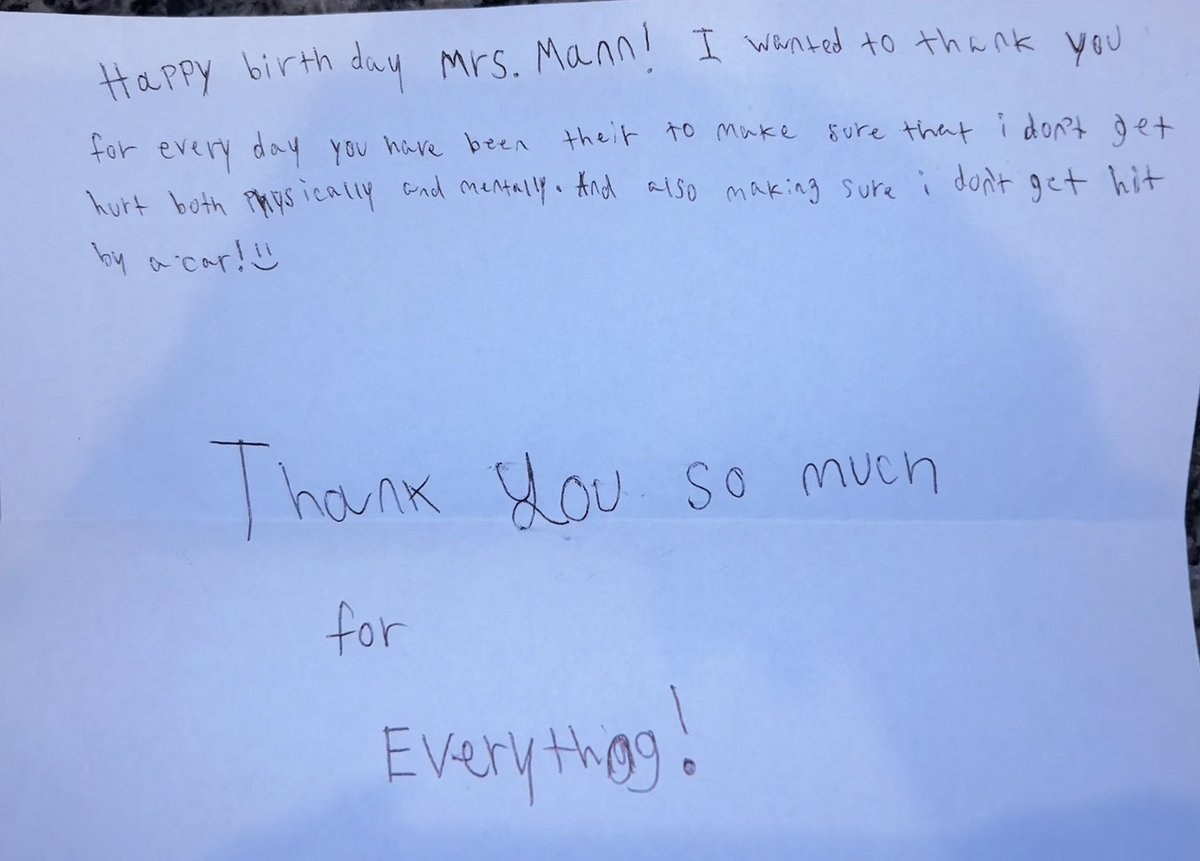 Happy birth day Mrs. Mann! I wanted to thank you
for every day you have been their to make sure that i don't get
hurt both physically and mentally. And also making sure i don't get hit
by a car! :)
Thank You so much
for
Everything!